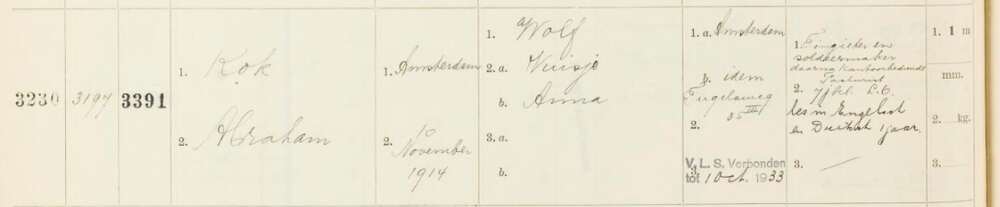 3230 3197 3391
1. Kok
2. Abraham
1. Amsterdam
2. 10
November
1914
1. a Wolf
2. a. Kuisje
b. Anna
3. a.
b.
1. a. Amsterdam
b. idem
35 III
2.
V. L. S. Verbonden
3.
tot 1 Oct. 1933
1. Tingieter en
soldeermaker
daarna kantoorbediende
2. 7 j kl. L.O.
les in Engelsch
en Duitsch 1 jaar.
3. —
1. 1 m
mm.
2. kg.
3.